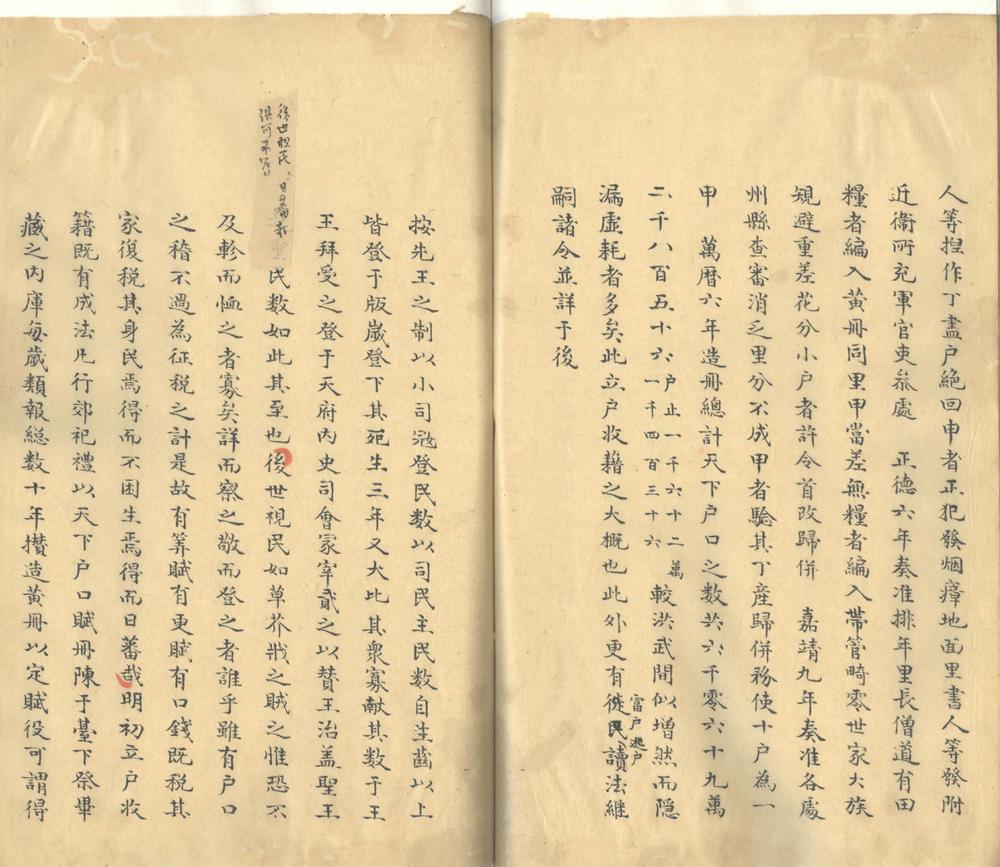 人等捏作丁盡戶絕回申者正犯發烟瘴地面里書人等發附
近衛所充軍官吏叅處　正德六年奏准排年里長僧道有田
糧者編入黃冊同里甲當差無糧者編入帶管畸零世家大族
規避重差花分小戶者許令首改歸併　嘉靖九年奏准各處
州縣查審消乏里分不成甲者騐其丁產歸併務使十戶為一
甲　萬曆六年造冊總計天下戶口之數共六千零六十九萬
二千八百五十六戶止一千六十二萬一千四百三十六較洪武間似增然而隱
漏虛耗者多矣此立戶收籍之大概也此外更有徙民富戶逃戶讀法繼
嗣諸令並詳于後
按先王之制以小司冦登民數以司民主民數自生齒以上
皆登于版嵗登下其死生三年又大比其衆寡献其數于王
王拜受之登于天府内史司會冢宰貳之以贊王治盖聖王
重民數如此其至也後世視民如草芥戕之賊之惟恐不
後世視民
及軫而恤之者寡矣詳而察之敬而登之者誰乎雖有戶口
之稽不過為征税之計是故有筭賦有更賦有口錢既税其
家復税其身民焉得而不困生焉得而日蕃哉明初立戶收
籍既有成法凡行郊祀禮以天下戶口賦冊陳于臺下祭畢
藏之内庫每歲類報縂数十年攅造黃冊以定賦役可謂得